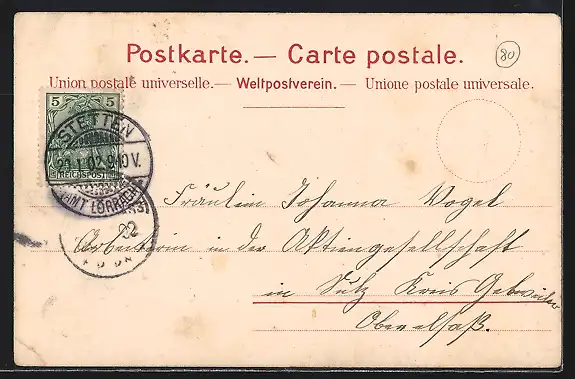 Postkarte. — Carte postale.
80
Union postale universelle. — Weltpostverein. — Unione postale universale.
5 5
REICHSPOST
STETTEN
9-10 V.
AMT LÖRRACH
02
Fräulein Johanna Vogel
Arbeiterin in der Aktiengesellschaft
in Sulz Kreis Gebweiler
Oberelsaß.